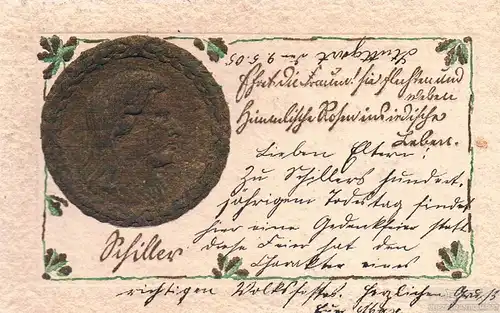 Stuttgart d. 9.5.05
Ehret die Frauen! sie flechten und
weben
Himmlische Rosen ins irdische
Leben.
Lieben Eltern!
Zu Schillers hundert-
jährigem Todestag findet
hier eine Gedenkfeier statt
diese Feier hat den
Charakter eines
richtigen Volksfestes. Herzlichen Gruß
Schiller